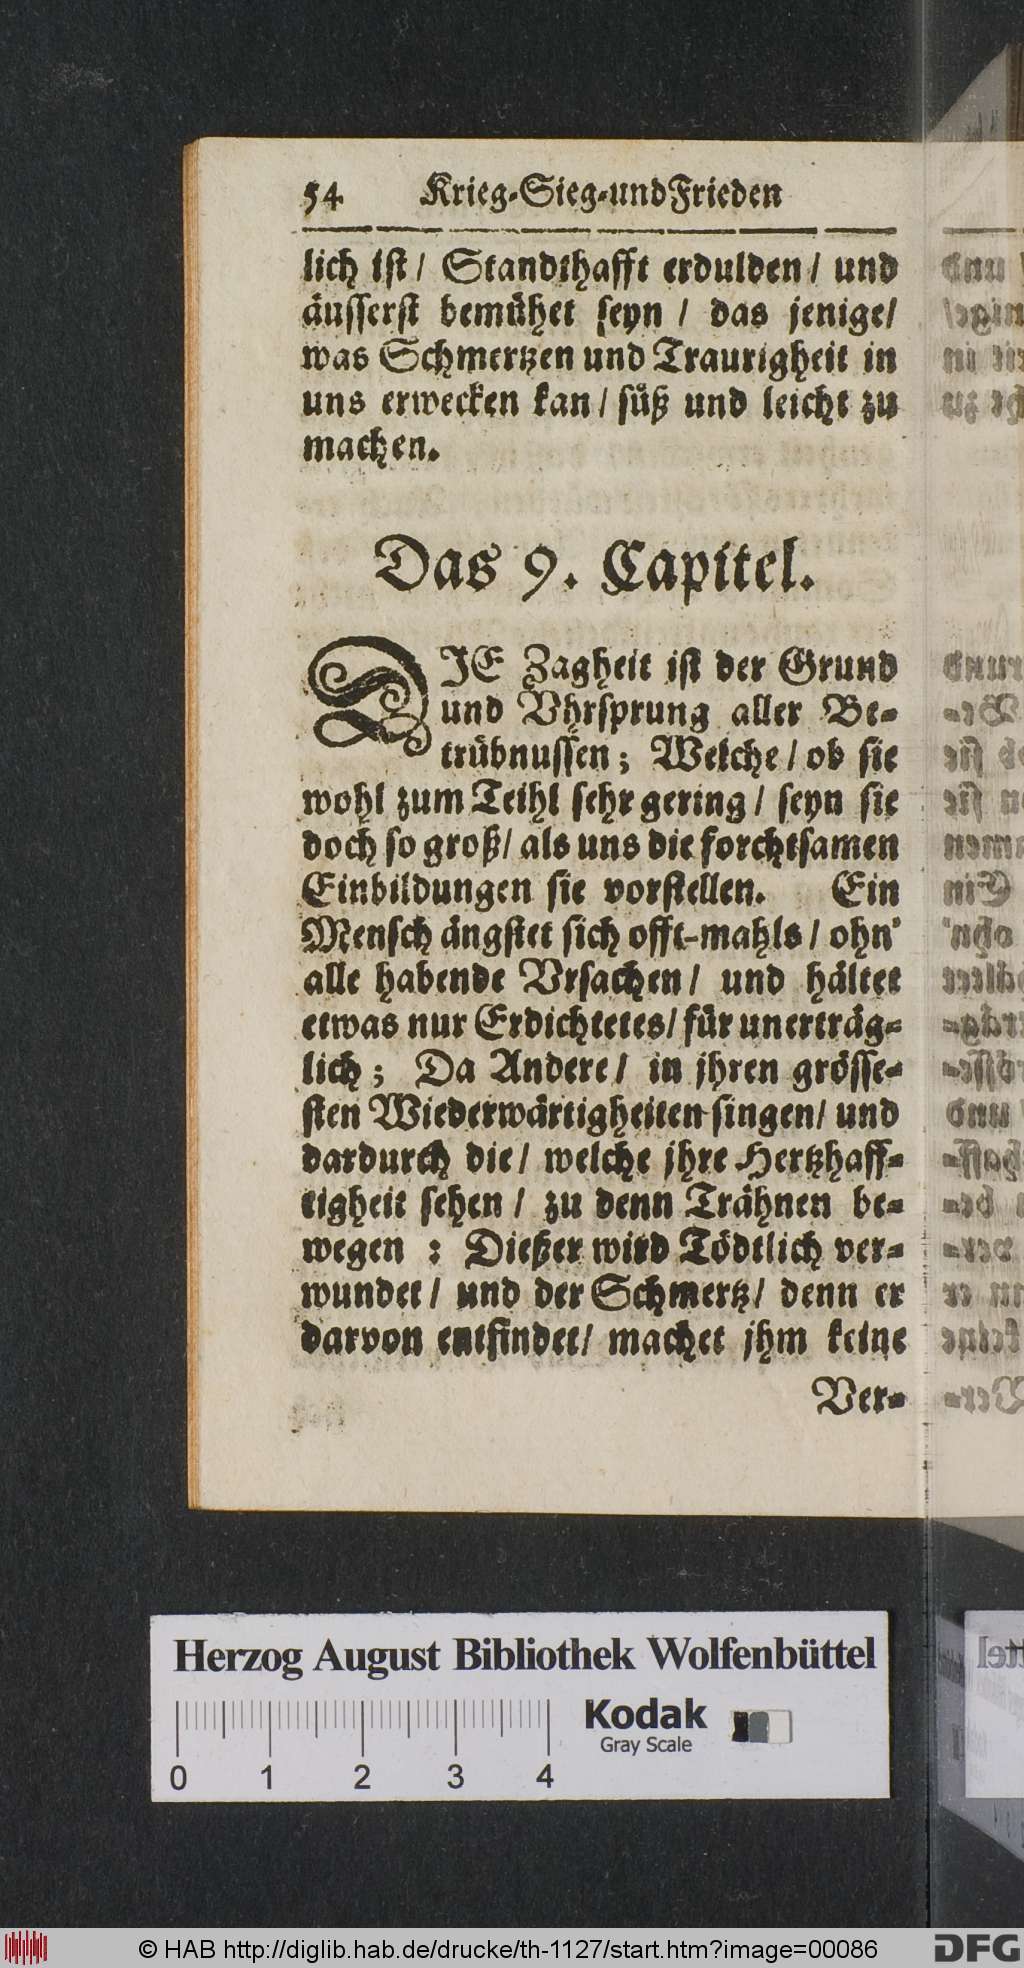 54 Krieg-Sieg-und Frieden
lich ist / Standthafft erdulden / und
äusserst bemühet seyn / das jenige /
was Schmertzen und Traurigheit in
uns erwecken kan / süß und leicht zu
machen.
Das 9. Capitel.
DIE Zagheit ist der Grund
und Vhrsprung aller Be-
trübnussen; Welche / ob sie
wohl zum Teihl sehr gering / seyn sie
doch so groß / als uns die forchtsamen
Einbildungen sie vorstellen. Ein
Mensch ängstet sich offt-mahls / ohn'
alle habende Vrsachen / und hältet
etwas nur Erdichtetes / für unerträg-
lich; Da Andere / in jhren grösse-
sten Wiederwärtigheiten singen / und
dardurch die / welche jhre Hertzhaff-
tigheit sehen / zu denn Trähnen be-
wegen : Dießer wird Tödtlich ver-
wundet / und der Schmertz / denn er
darvon entfindet / machet jhm keine
Ver-
Herzog August Bibliothek Wolfenbüttel
Kodak
Gray Scale
0 1 2 3 4
© HAB http://diglib.hab.de/drucke/th-1127/start.htm?image=00086
DFG